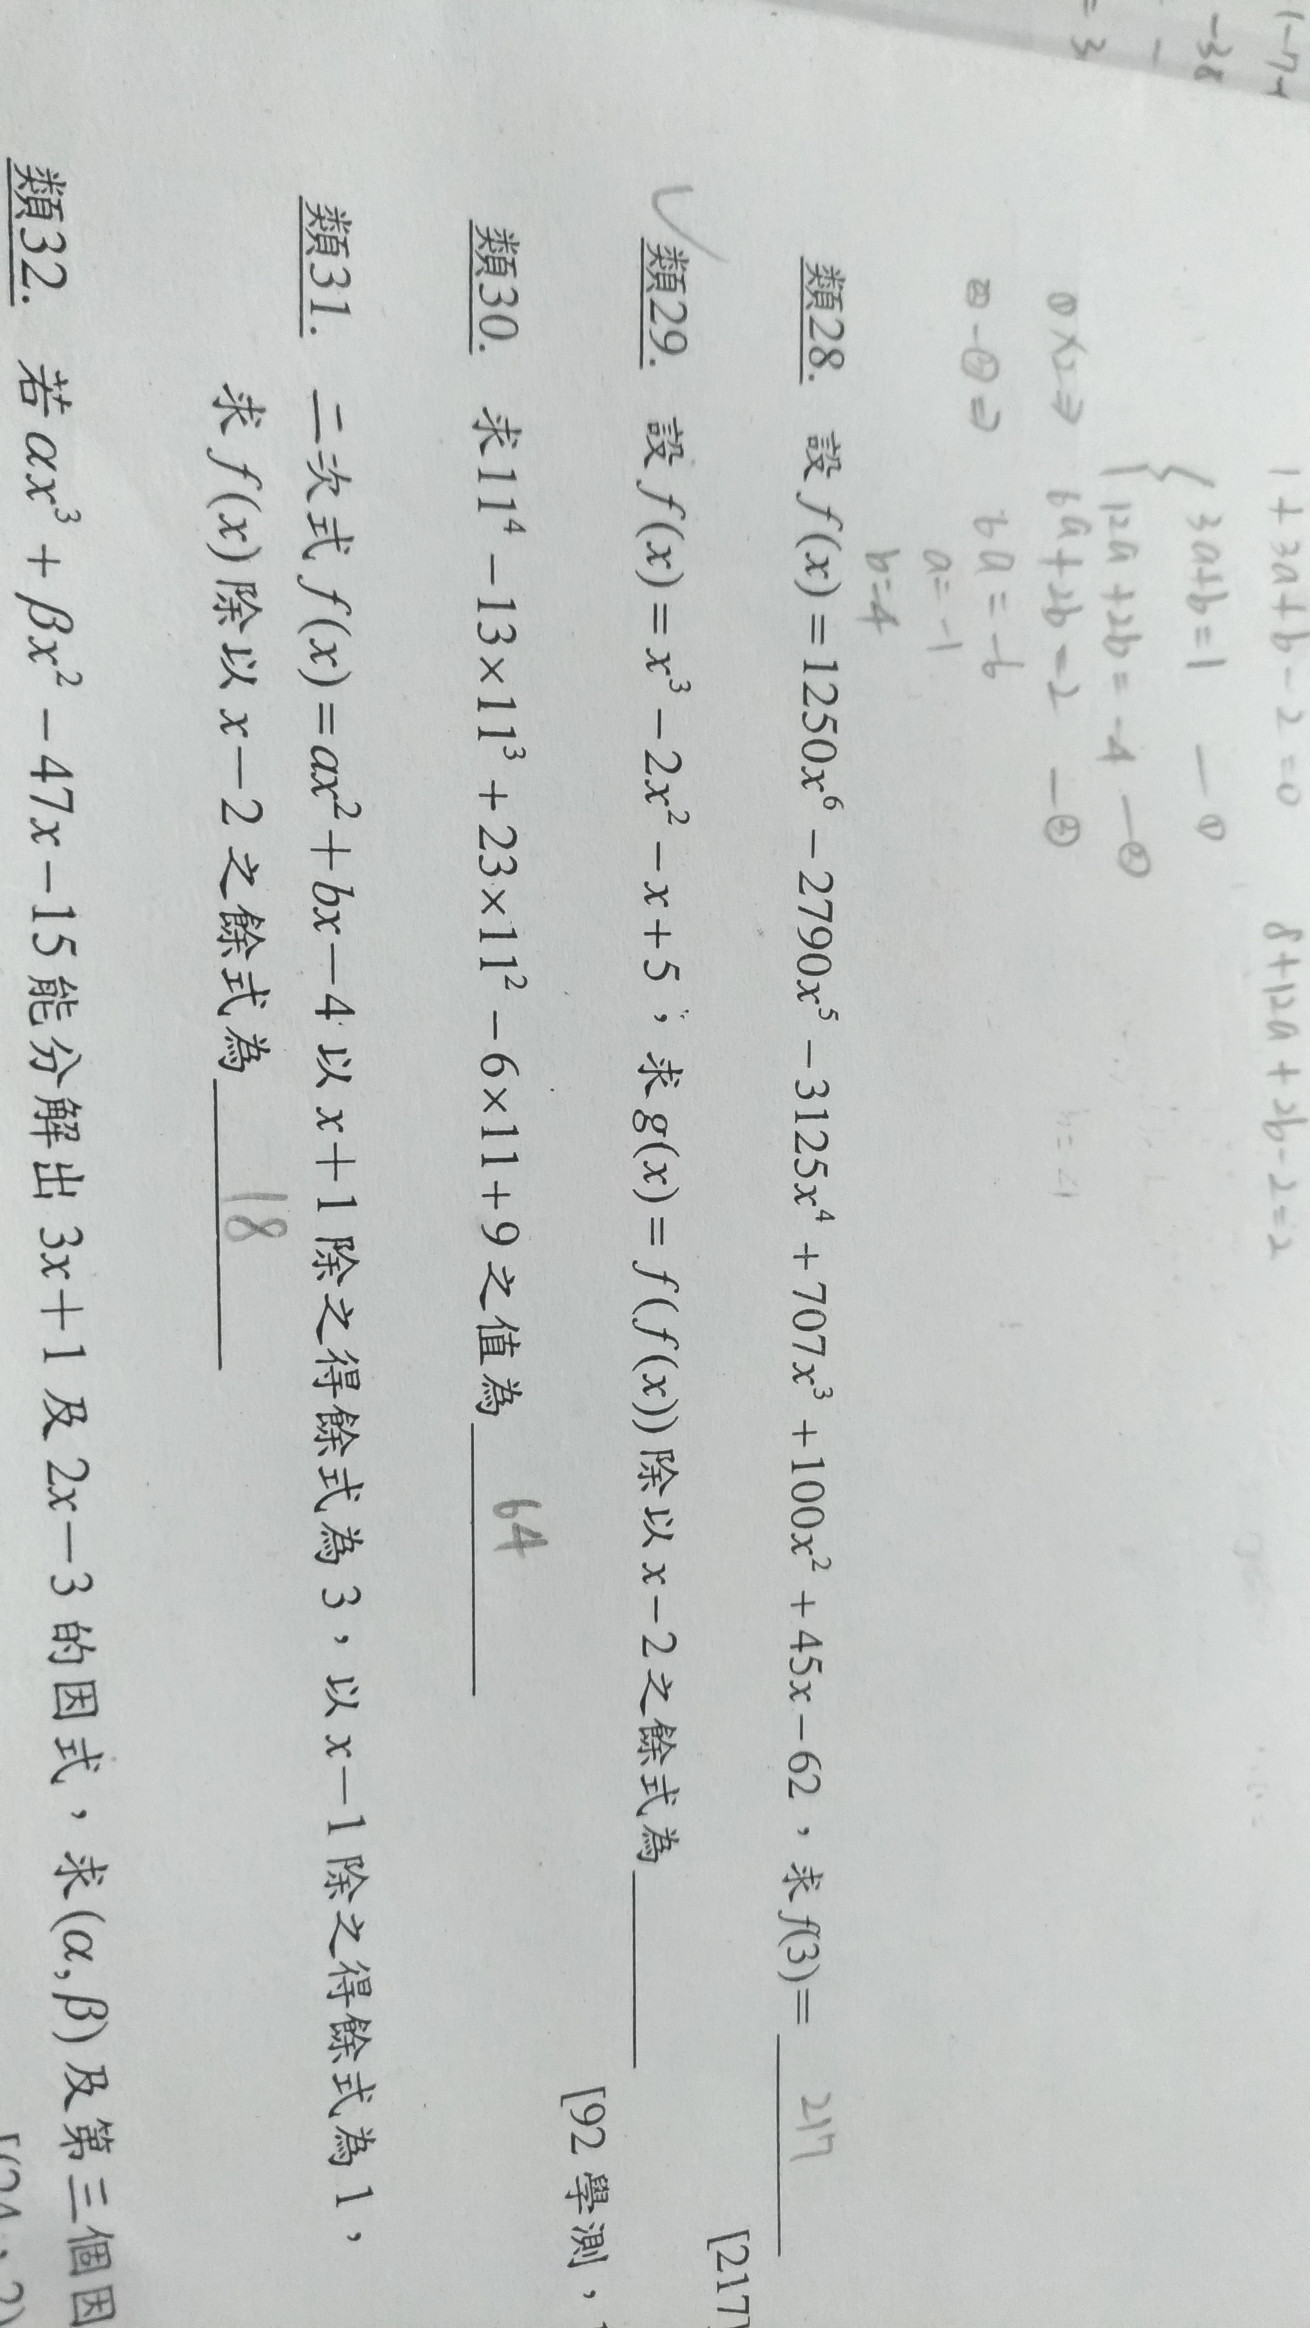 1-7-
-38
-
= 3
1+3a+b-2=0    8+12a+2b-2=2
3a+b=1 —①
12a+2b=-4 —②
①×2⇒ 6a+2b=2 —③
②-③⇒ 6a=-6
a=-1
b=4
類28. 設 f(x)=1250x⁶-2790x⁵-3125x⁴+707x³+100x²+45x-62，求 f(3)= 217
[217]
✓類29. 設 f(x)=x³-2x²-x+5，求 g(x)=f(f(x))除以 x-2 之餘式為
[92 學測，
類30. 求 11⁴-13×11³+23×11²-6×11+9 之值為 64
類31. 二次式 f(x)=ax²+bx-4 以 x+1 除之得餘式為 3，以 x-1 除之得餘式為 1，
求 f(x)除以 x-2 之餘式為 18
類32. 若 αx³+βx²-47x-15 能分解出 3x+1 及 2x-3 的因式，求(α,β)及第三個因